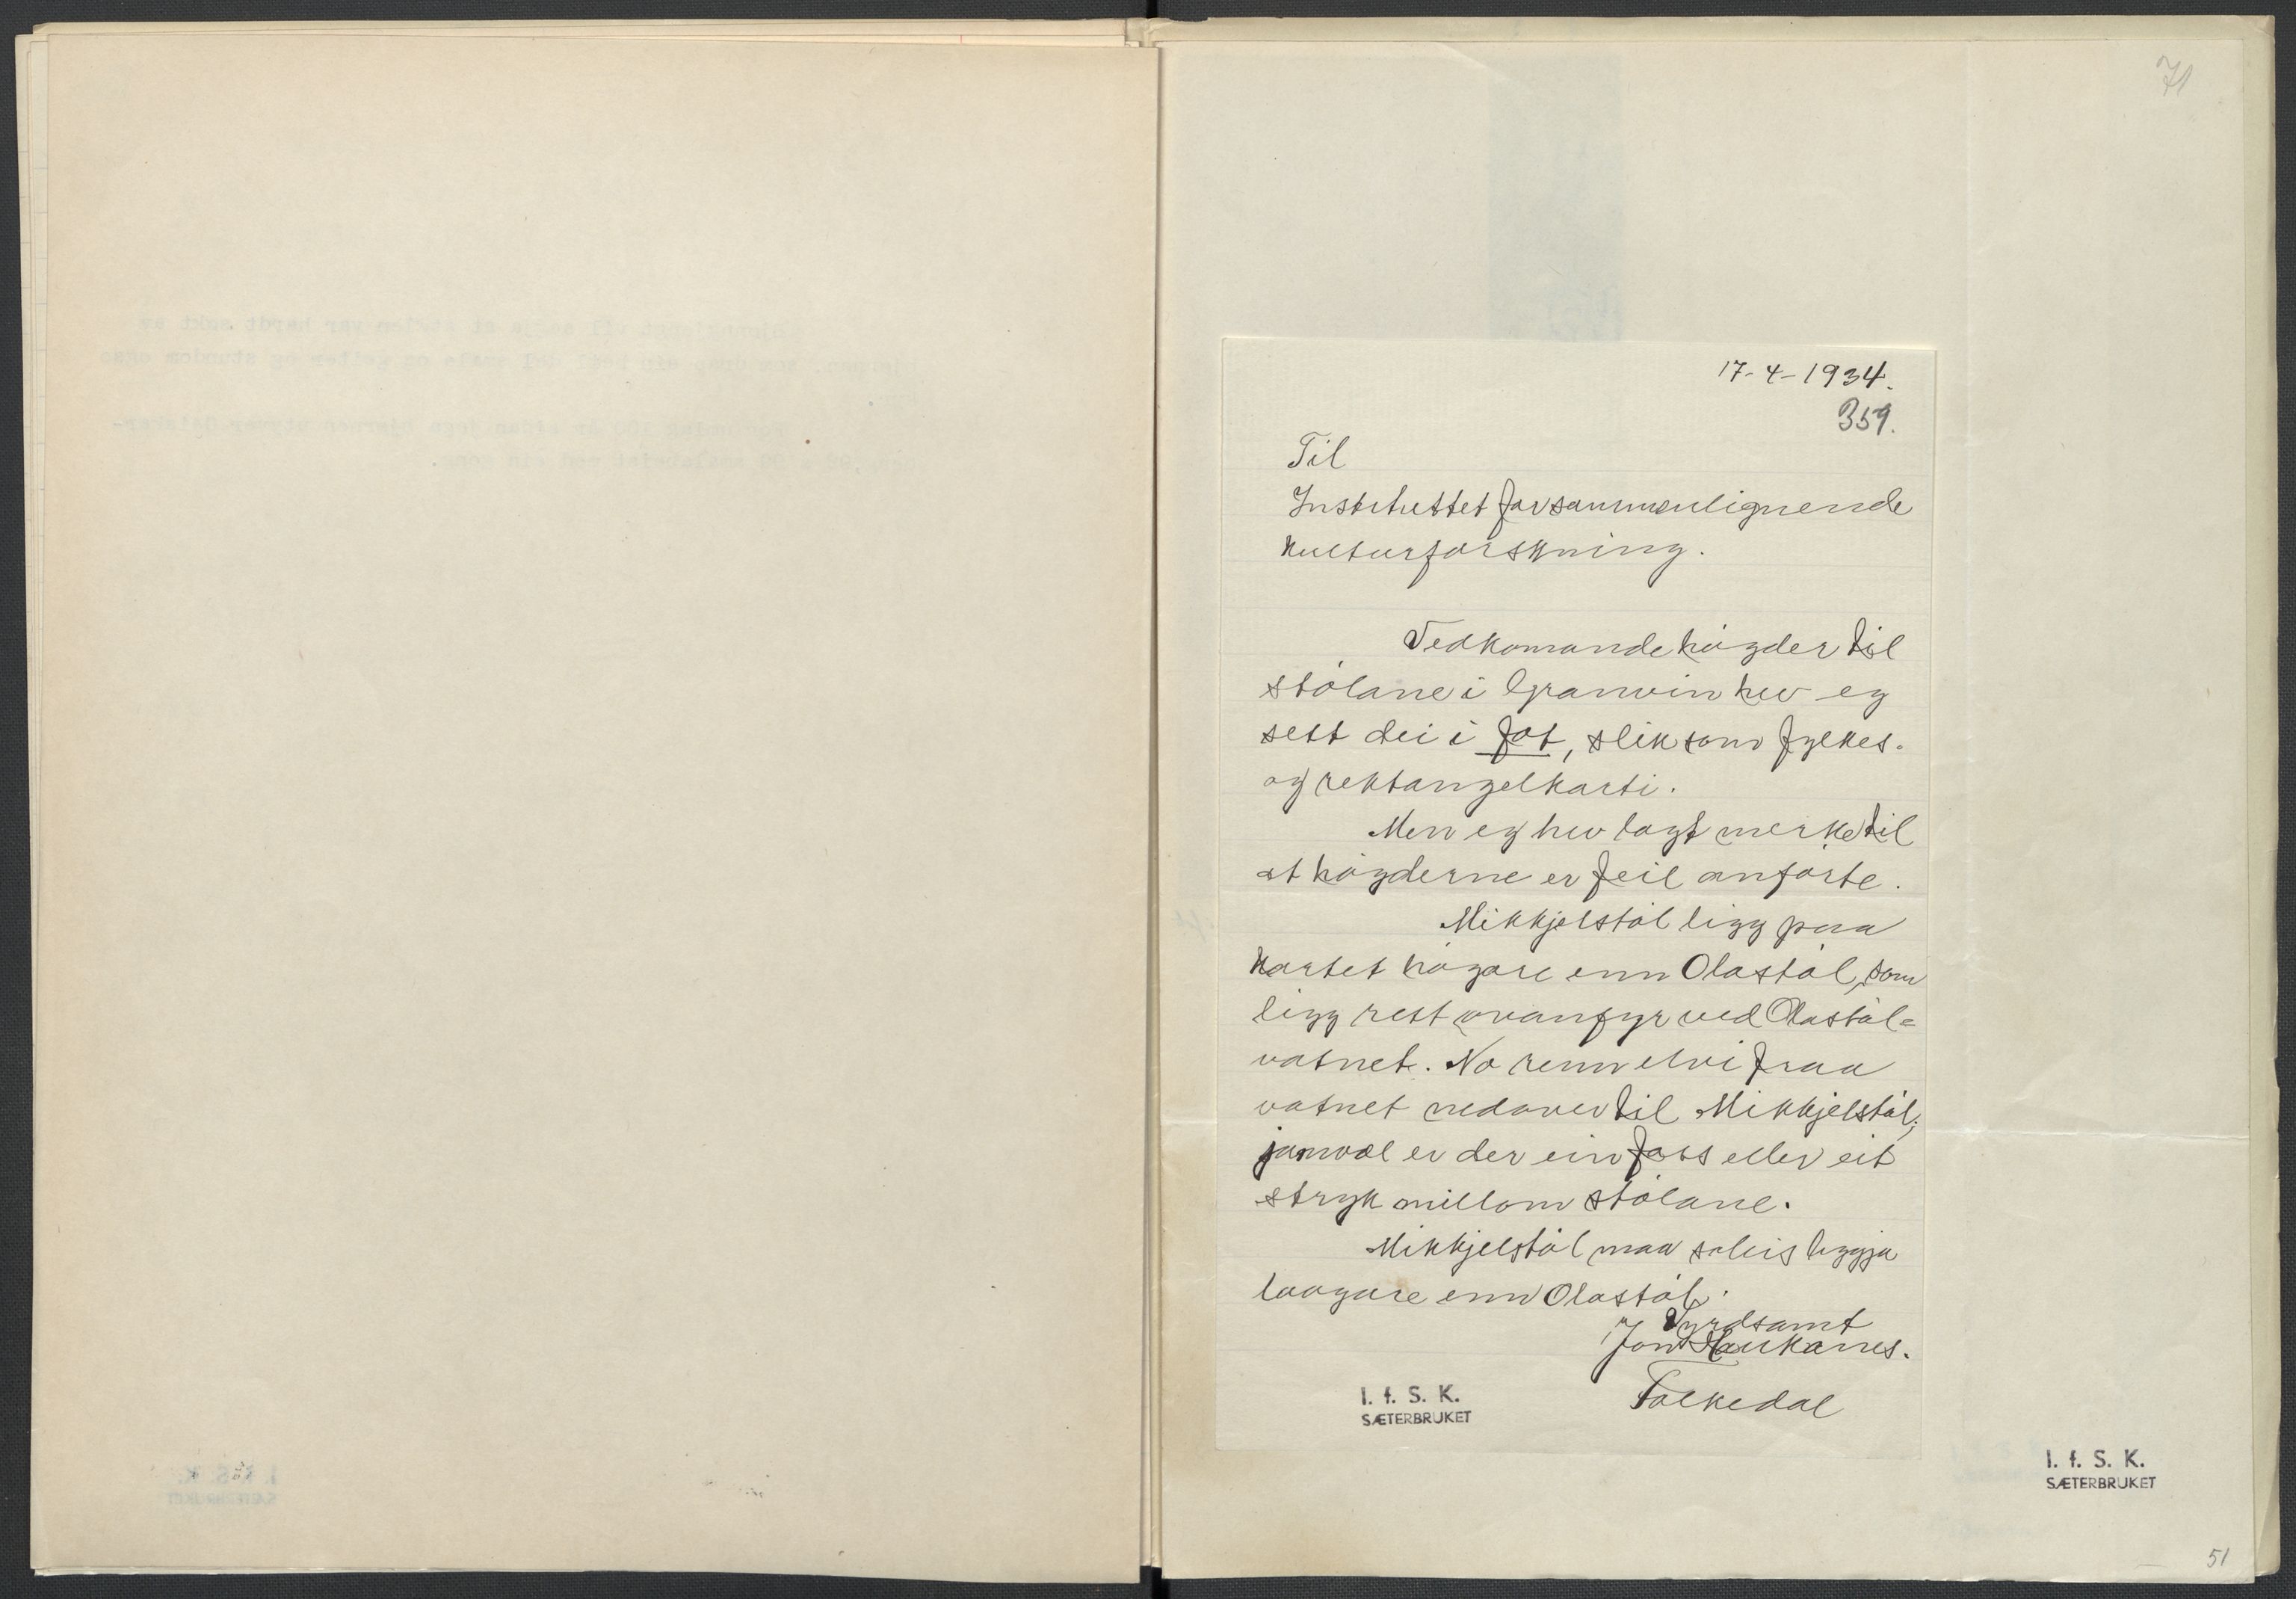 71
17-4-1934.
359.
Til
Instituttet for sammenlignende
Kulturforskning.
Vedkomande högder til
stölane i Granvin hev eg
sett dei i fot, slik som fylkes-
og rektangelkarti.
Men eg hev lagt merke til
at högderne er feil anförte.
Mikkjelstöl ligg paa
kartet högare enn Olastöl, som
ligg rett ovanfyr ved Olastöl=
vatnet. No renn elvi fraa
vatnet nedover til Mikkjelstöl;
jamvæl er der ein foss eller eit
stryk millom stölane.
Mikkjelstöl maa soleis liggja
laagare enn Olastöl.
Vyrdsamt
Jon Haukanes.
Folkedal
I. f. S. K.
SÆTERBRUKET
I. f. S. K.
SÆTERBRUKET
51